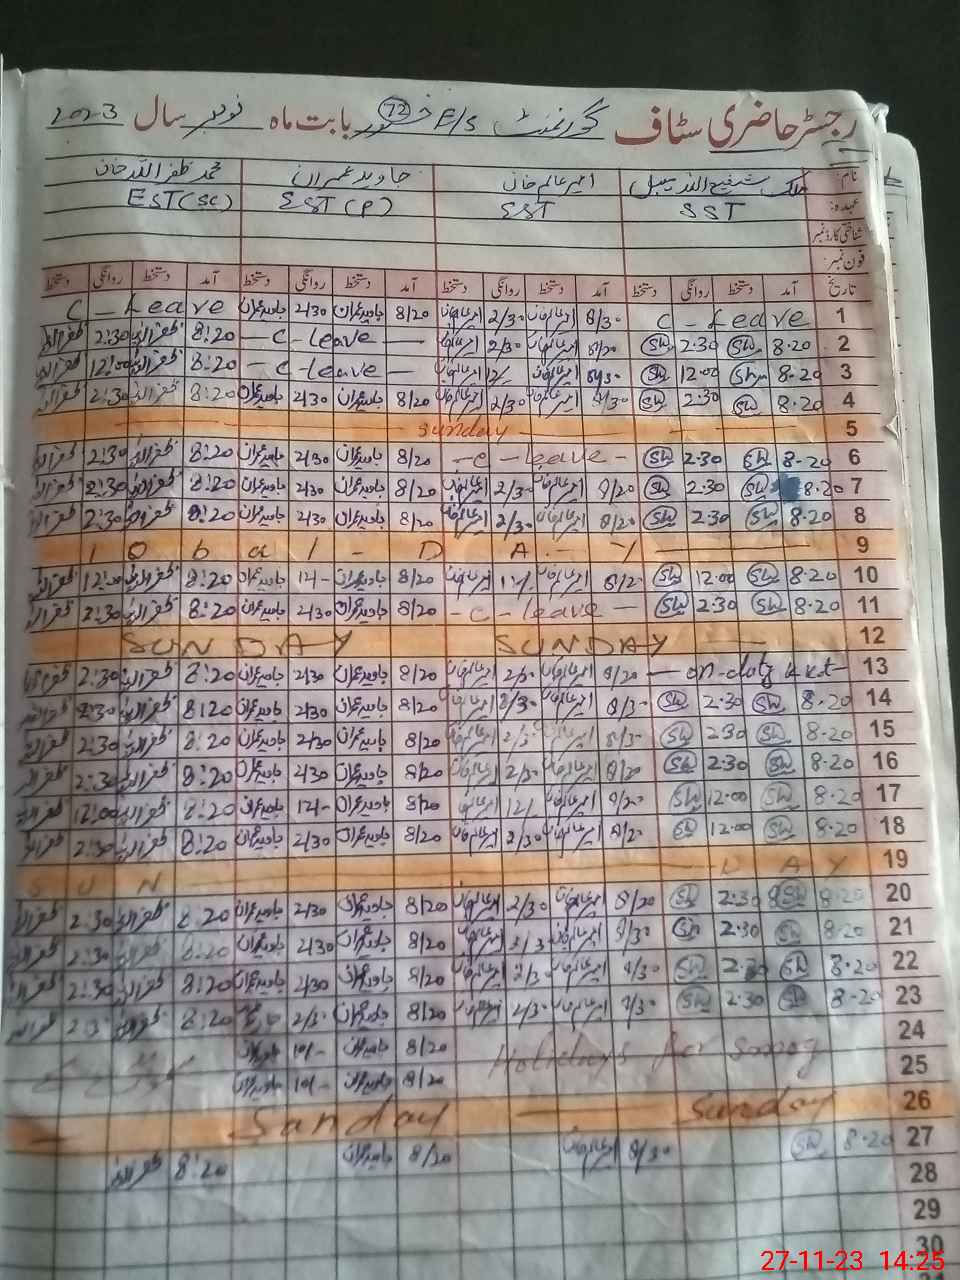 رجسٹر حاضری سٹاف گورنمنٹ E/S 72 بابت ماہ نومبر سال 2023
نام: ملک امیر عالم خان جاوید عمران محمد ظفر اللہ خان
عہدہ: SST SST EST (P) EST (SC)
شناختی کارڈ نمبر
فون نمبر:
تاریخ آمد دستخط روانگی دستخط آمد دستخط روانگی دستخط آمد دستخط روانگی دستخط آمد دستخط روانگی دستخط
1 C - Leave 8/30 امیر عالم خان 2/30 امیر عالم خان 8/20 جاوید عمران 2/30 جاوید عمران C - Leave
2 8.20 2.30 8/20 امیر عالم خان 2/30 امیر عالم خان - C - leave - 8:20 ظفر اللہ 2:30 ظفر اللہ
3 8.20 12.00 8/30 امیر عالم خان 12/ امیر عالم خان - C - leave - 8:20 ظفر اللہ 12:00 ظفر اللہ
4 8.20 2.30 8/30 امیر عالم خان 2/30 امیر عالم خان 8/20 جاوید عمران 2/30 جاوید عمران 8:20 ظفر اللہ 2:30 ظفر اللہ
5 Sunday
6 8.20 2.30 - C - leave - 8/20 جاوید عمران 2/30 جاوید عمران 8:20 ظفر اللہ 2:30 ظفر اللہ
7 8.20 2.30 8/20 امیر عالم خان 2/30 امیر عالم خان 8/20 جاوید عمران 2/30 جاوید عمران 8:20 ظفر اللہ 2:30 ظفر اللہ
8 8.20 2.30 8/20 امیر عالم خان 2/30 امیر عالم خان 8/20 جاوید عمران 2/30 جاوید عمران 8:20 ظفر اللہ 2:30 ظفر اللہ
9 Iqbal - DAY
10 8.20 12.00 8/20 امیر عالم خان امیر عالم خان 8/20 جاوید عمران 12/- جاوید عمران 8:20 ظفر اللہ 12:00 ظفر اللہ
11 8.20 2.30 - C - leave - 8/20 جاوید عمران 2/30 جاوید عمران 8:20 ظفر اللہ 2:30 ظفر اللہ
12 SUNDAY SUNDAY
13 - on-duty 8/20 امیر عالم خان 2/30 امیر عالم خان 8/20 جاوید عمران 2/30 جاوید عمران 8:20 ظفر اللہ 2:30 ظفر اللہ
14 8.20 2.30 8/30 امیر عالم خان 2/30 امیر عالم خان 8/20 جاوید عمران 2/30 جاوید عمران 8:20 ظفر اللہ 2:30 ظفر اللہ
15 8.20 2.30 8/30 امیر عالم خان 2/30 امیر عالم خان 8/20 جاوید عمران 2/30 جاوید عمران 8:20 ظفر اللہ 2:30 ظفر اللہ
16 8.20 2.30 8/20 امیر عالم خان 2/30 امیر عالم خان 8/20 جاوید عمران 2/30 جاوید عمران 8:20 ظفر اللہ 2:30 ظفر اللہ
17 8.20 12.00 8/20 امیر عالم خان 12/ امیر عالم خان 8/20 جاوید عمران 12/- جاوید عمران 8:20 ظفر اللہ 12:00 ظفر اللہ
18 8.20 12.00 8/20 امیر عالم خان 2/30 امیر عالم خان 8/20 جاوید عمران 2/30 جاوید عمران 8:20 ظفر اللہ 2:30 ظفر اللہ
19 SUN DAY
20 8.20 2.30 8/20 امیر عالم خان 2/30 امیر عالم خان 8/20 جاوید عمران 2/30 جاوید عمران 8:20 ظفر اللہ 2:30 ظفر اللہ
21 8.20 2.30 8/30 امیر عالم خان امیر عالم خان 8/20 جاوید عمران 2/30 جاوید عمران 8:20 ظفر اللہ 2:30 ظفر اللہ
22 8.20 2.30 8/30 امیر عالم خان 2/30 امیر عالم خان 8/20 جاوید عمران 2/30 جاوید عمران 8:20 ظفر اللہ 2:30 ظفر اللہ
23 8.20 2.30 8/30 امیر عالم خان 2/30 امیر عالم خان 8/20 جاوید عمران 2/30 8:20 ظفر اللہ ظفر اللہ
24 Holidays for 8/20 جاوید عمران 10/- جاوید عمران
25 8/20 جاوید عمران 10/- جاوید عمران
26 Sunday Sunday
27 8.20 8/30 امیر عالم خان 8/20 جاوید عمران 8:20 ظفر اللہ
28
29
30
27-11-23 14:25